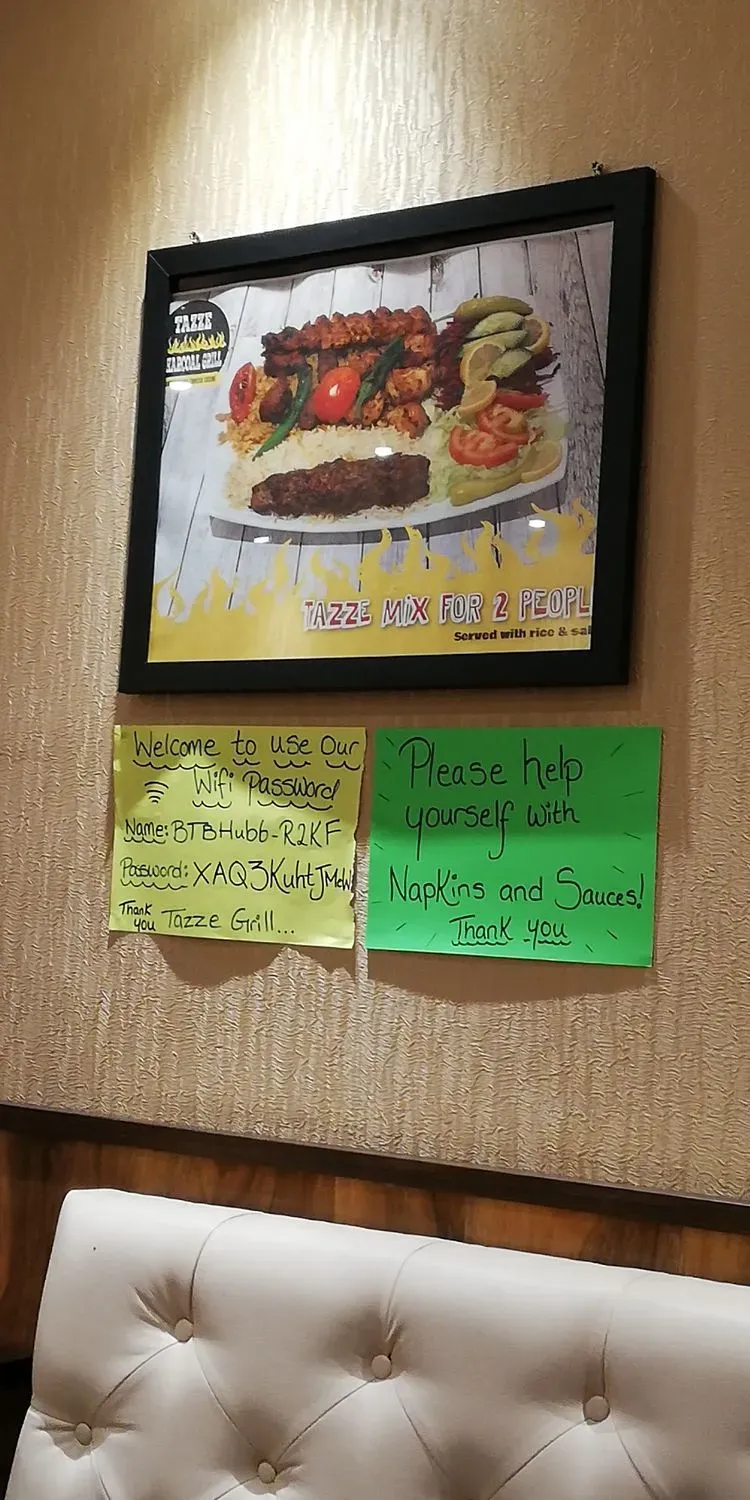 TAZZE
HARCOAL GRILL
TAZZE MIX FOR 2 PEOPL
Served with rice & sal
Welcome to use Our
Wifi Password
Name: BTBHub6-R2KF
Password: XAQ3KuhtJMcW
Thank you Tazze Grill...
Please help
yourself with
Napkins and Sauces!
Thank you